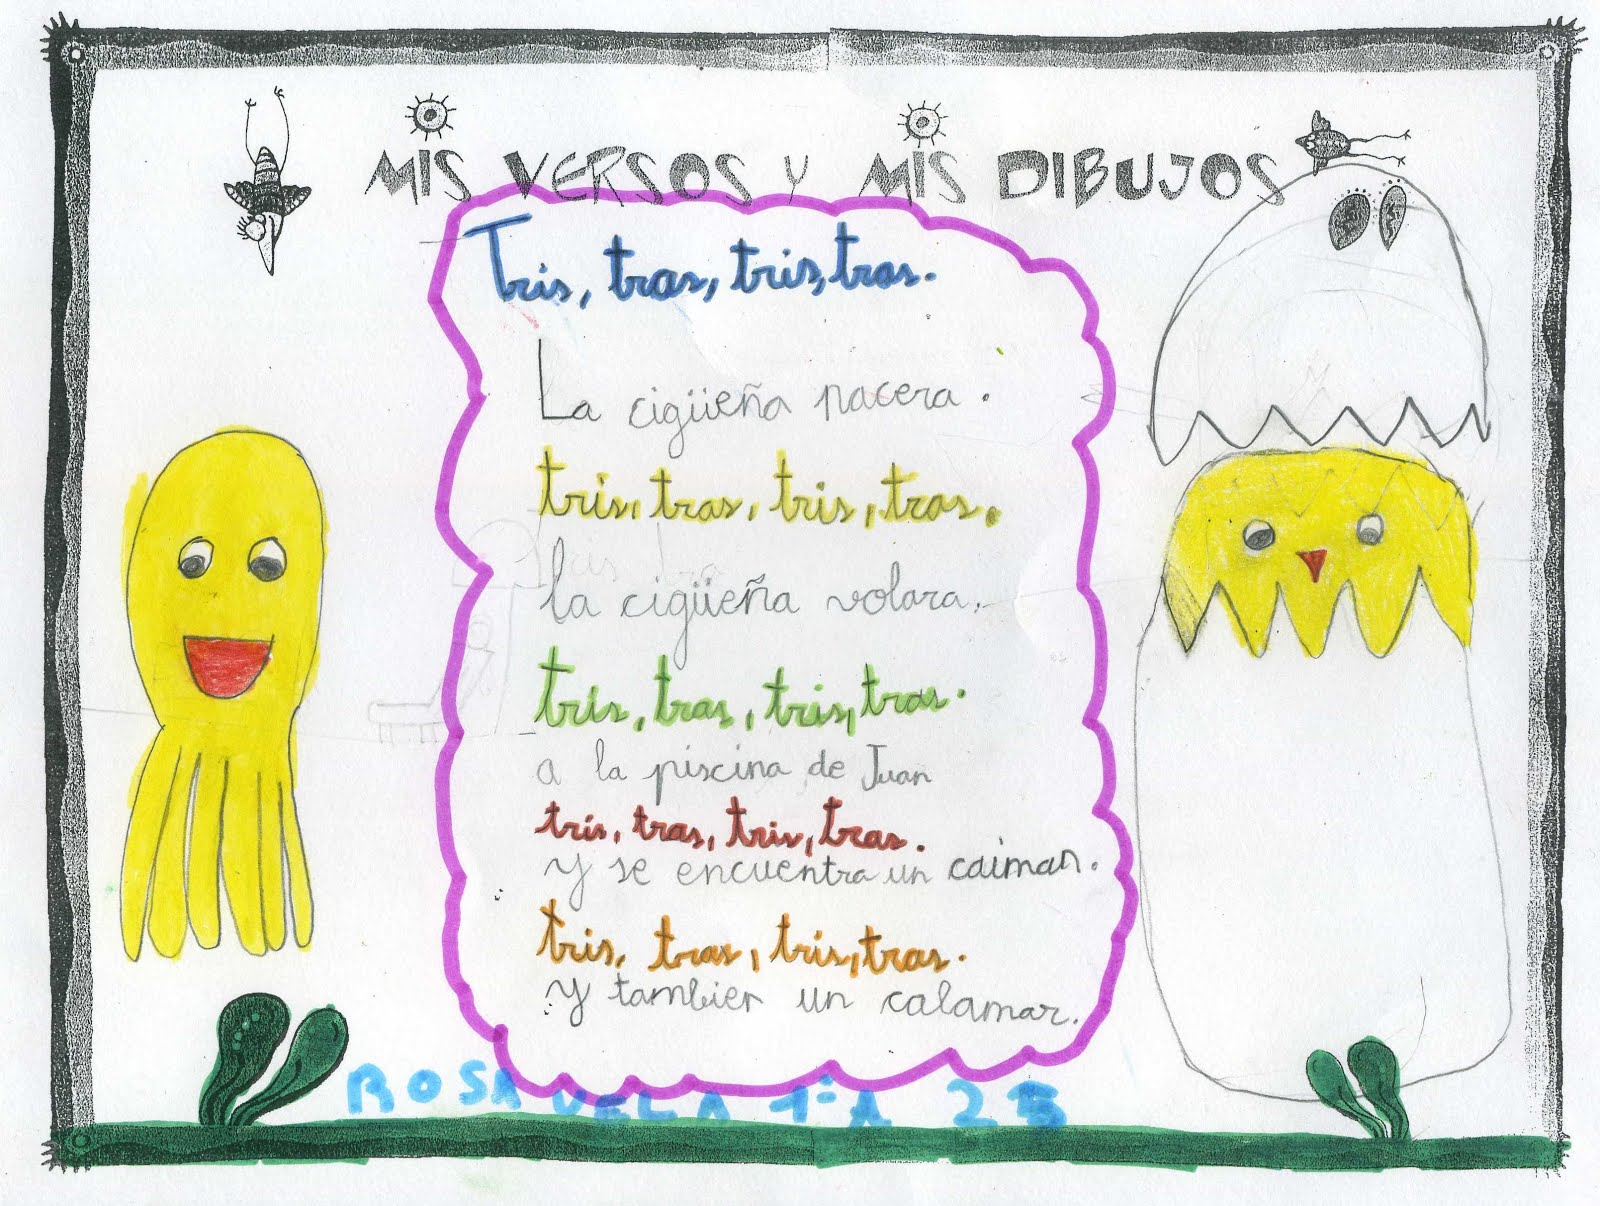 MIS VERSOS Y MIS DIBUJOS
Tris, tras, tris, tras.
La cigüeña nacera.
tris, tras, tris, tras.
la cigüeña volara.
tris, tras, tris, tras.
a la piscina de Juan
tris, tras, tris, tras.
y se encuentra un caiman.
tris, tras, tris, tras.
y tambien un calamar.
ROSA VELA 1º A 25